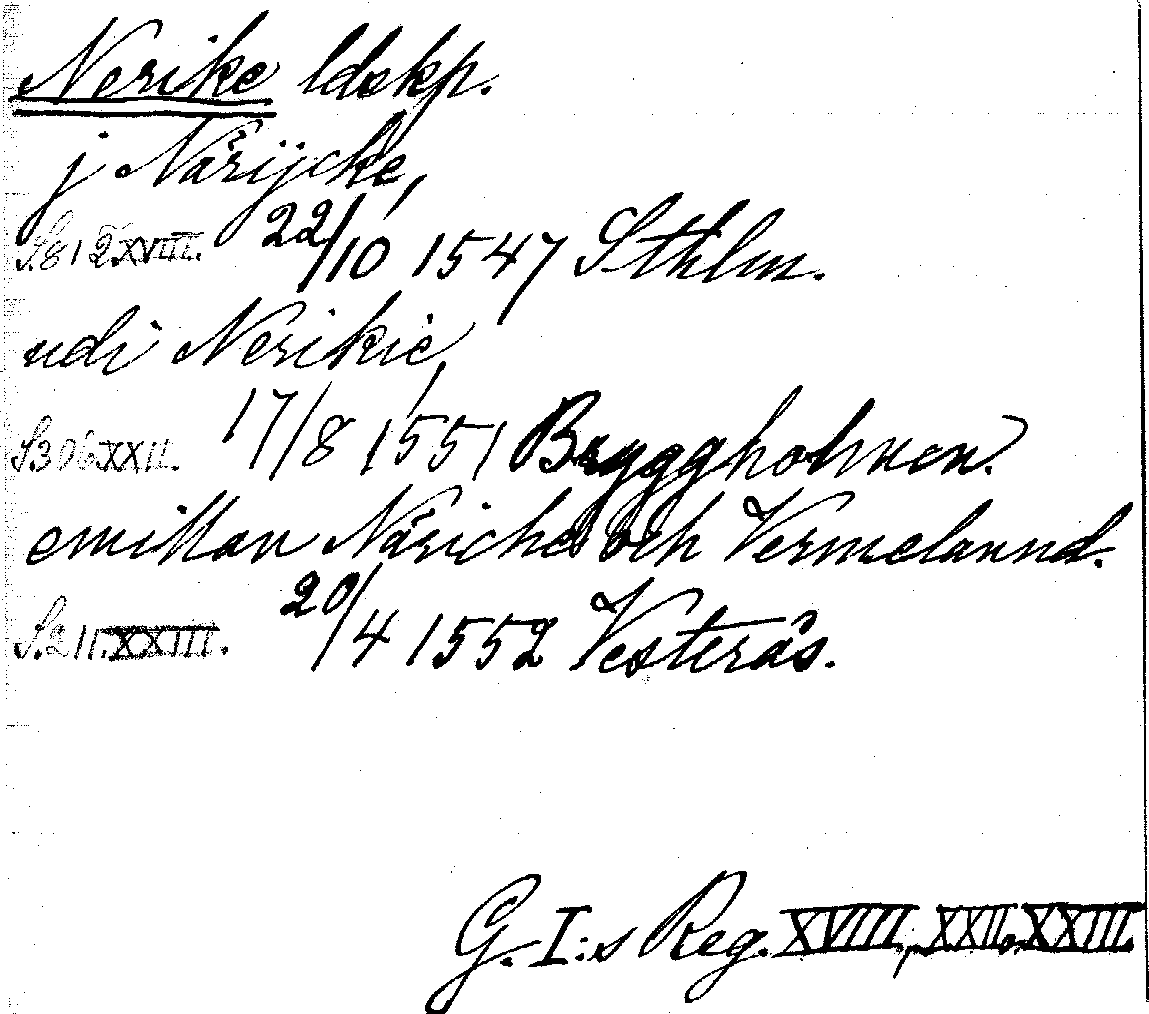 Nerike ldskp.
j Närijcke,
S.812 XVIII. 22/10 1547 Sthlm.
udi Nerikie,
S306 XXII. 17/8 1551 Bryggholmen.
emillan Näriche och Vermelannd.
S.211.XXIII. 20/4 1552 Vesterås.
G. I:s Reg. XVIII, XXII, XXIII.